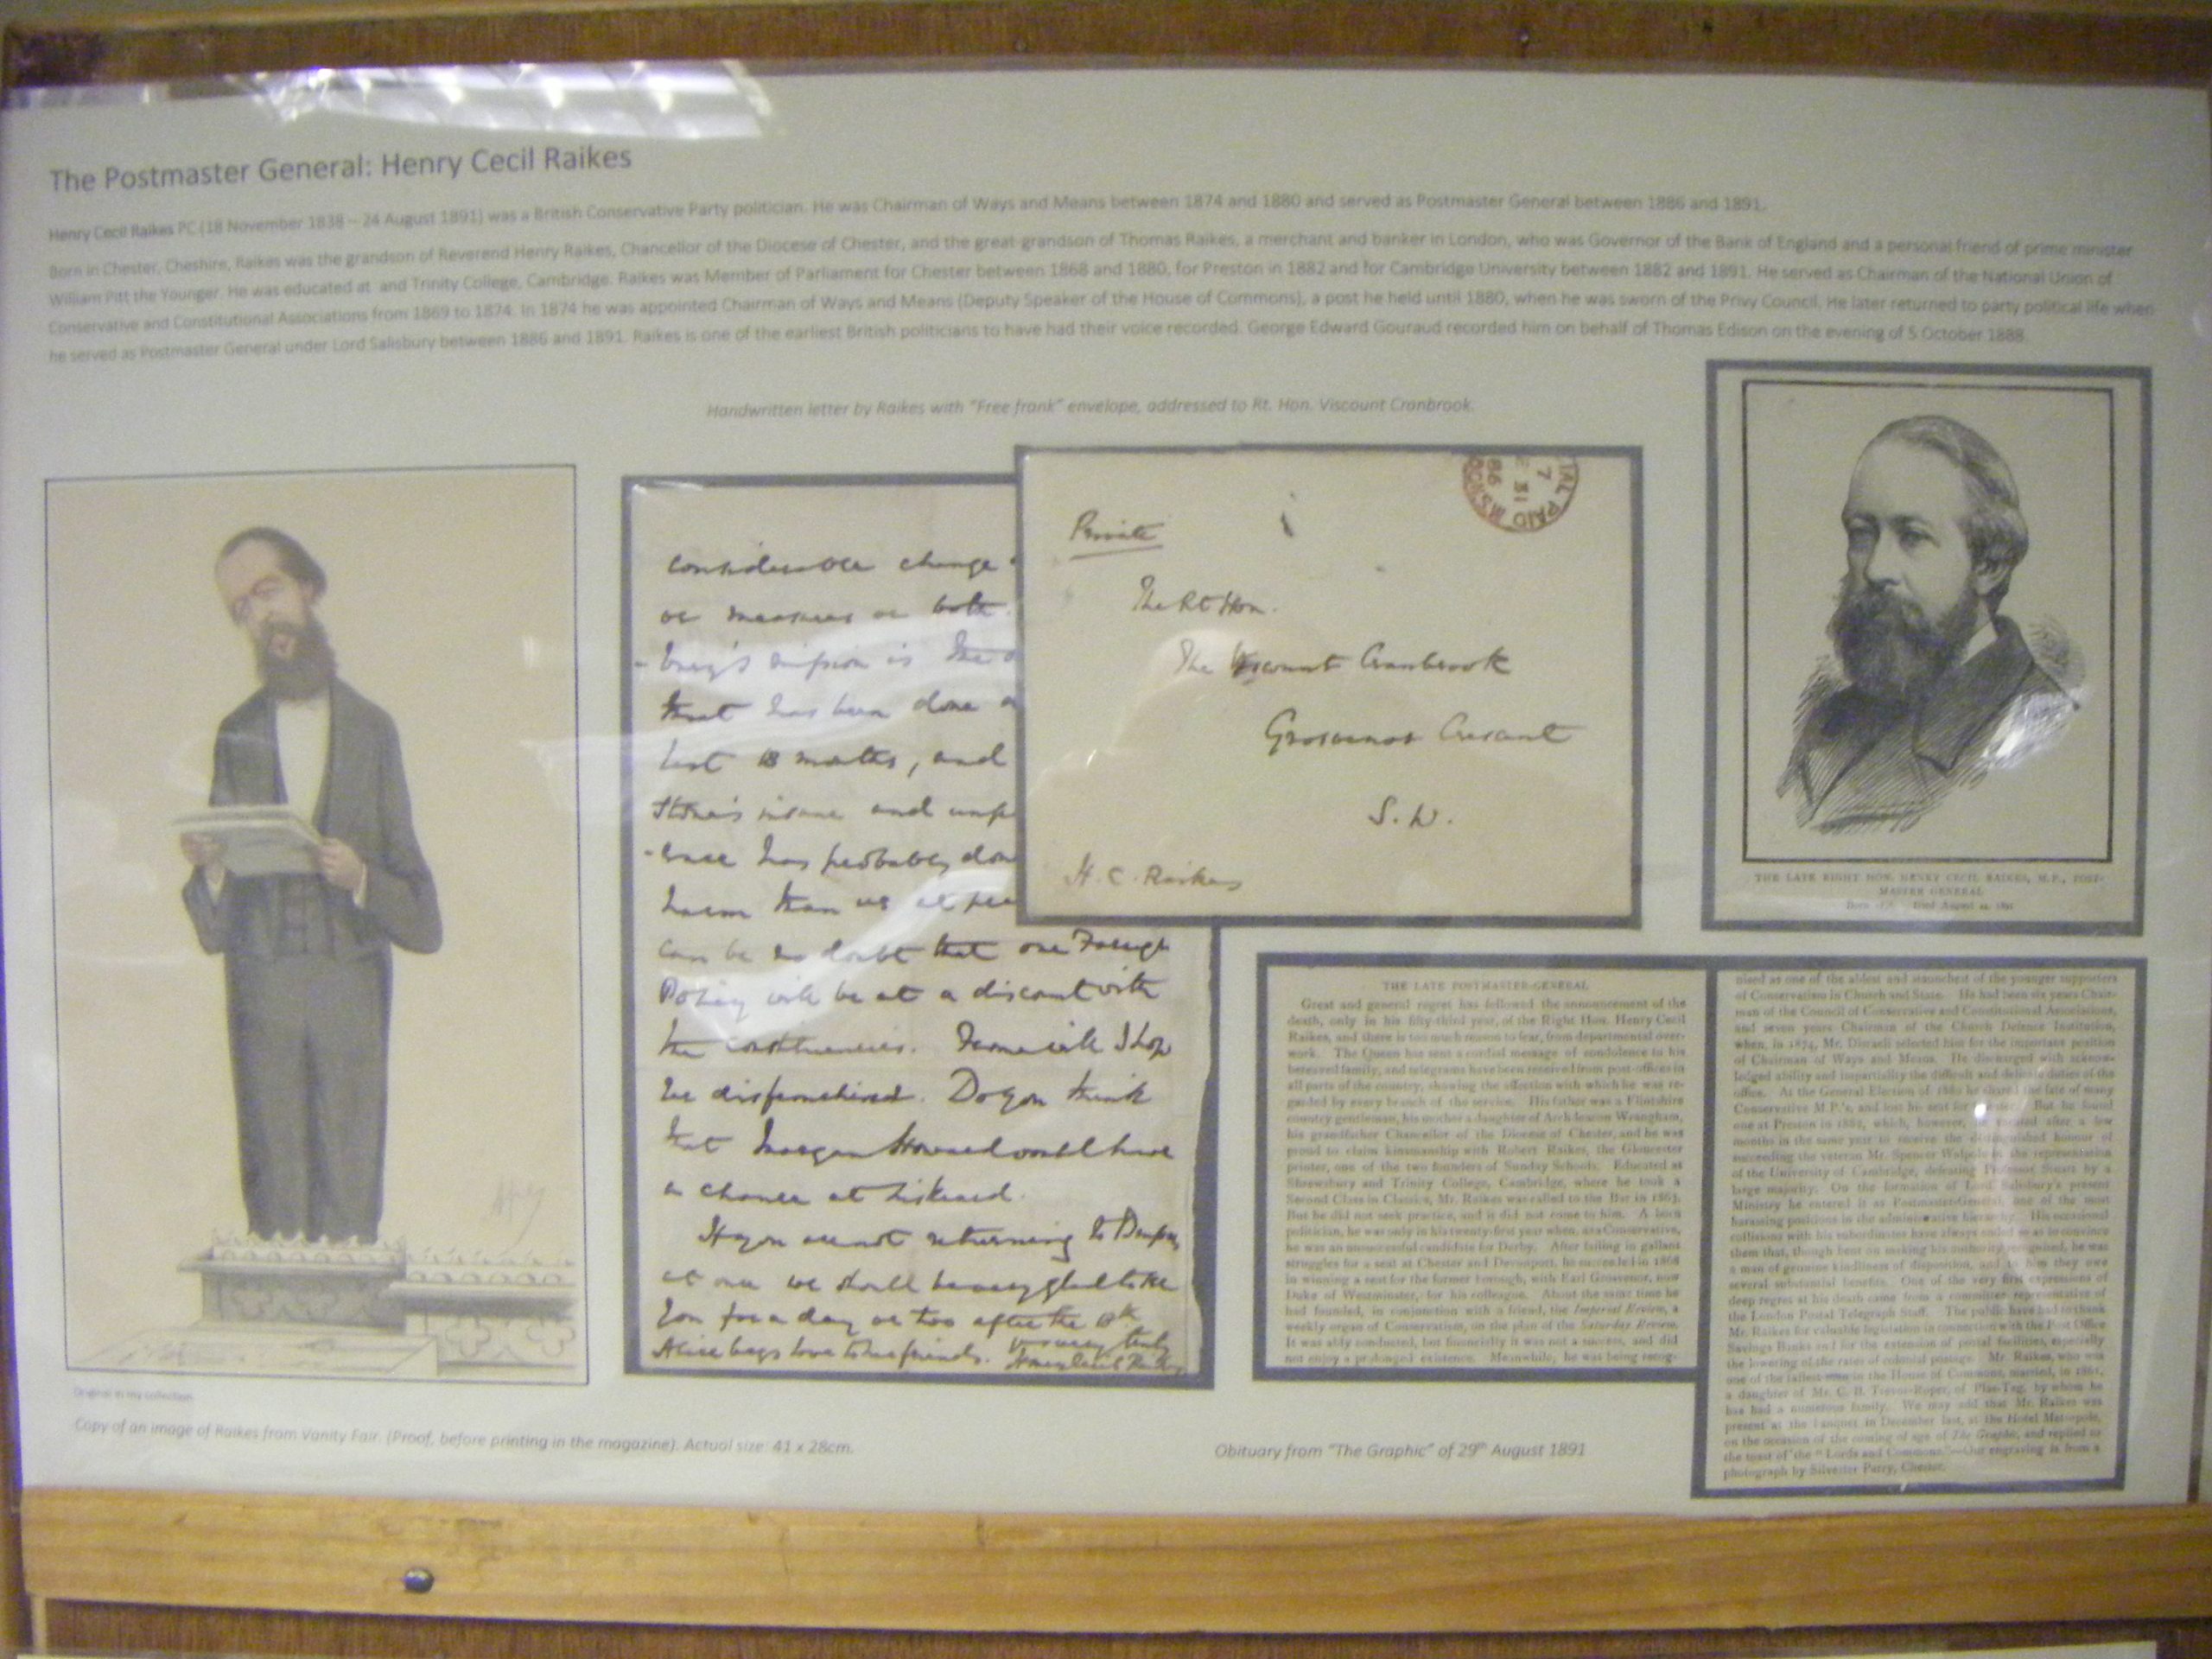 The Postmaster General: Henry Cecil Raikes
Henry Cecil Raikes PC (18 November 1838 – 24 August 1891) was a British Conservative Party politician. He was Chairman of Ways and Means between 1874 and 1880 and served as Postmaster General between 1886 and 1891.
Born in Chester, Cheshire, Raikes was the grandson of Reverend Henry Raikes, Chancellor of the Diocese of Chester, and the great-grandson of Thomas Raikes, a merchant and banker in London, who was Governor of the Bank of England and a personal friend of prime minister
William Pitt the Younger. He was educated at and Trinity College, Cambridge. Raikes was Member of Parliament for Chester between 1868 and 1880, for Preston in 1882 and for Cambridge University between 1882 and 1891. He served as Chairman of the National Union of
Conservative and Constitutional Associations from 1869 to 1874. In 1874 he was appointed Chairman of Ways and Means (Deputy Speaker of the House of Commons), a post he held until 1880, when he was sworn of the Privy Council. He later returned to party political life when
he served as Postmaster General under Lord Salisbury between 1886 and 1891. Raikes is one of the earliest British politicians to have had their voice recorded. George Edward Gouraud recorded him on behalf of Thomas Edison on the evening of 5 October 1888.
Handwritten letter by Raikes with "Free frank" envelope, addressed to Rt. Hon. Viscount Cranbrook.
considerable change
or measures or both.
that has been done
last 18 months, and
insane and
has probably
harm than
can be no doubt that our Foreign
Policy will be at a discount with
the constituencies. I hope
be disfranchised. Do you think
that Morgan Howard would have
a chance at Liskeard.
If you are not returning to
at once we shall be very glad to see
you for a day or two after the
Alice begs love to her friends. yrs very truly
Private
The Rt Hon.
The Viscount Cranbrook
Grosvenor Crescent
S.W.
H. C. Raikes
PAID
86
THE LATE RIGHT HON. HENRY CECIL RAIKES, M.P., POST-
MASTER GENERAL
Died August
THE LATE POSTMASTER-GENERAL
Great and general regret has followed the announcement of the
death, only in his fifty-third year, of the Right Hon. Henry Cecil
Raikes, and there is too much reason to fear, from departmental over-
work. The Queen has sent a cordial message of condolence to his
bereaved family, and telegrams have been received from post-offices in
all parts of the country, showing the affection with which he was re-
garded by every branch of the service. His father was a Flintshire
country gentleman, his mother a daughter of Archdeacon Wrangham,
his grandfather Chancellor of the Diocese of Chester, and he was
proud to claim kinsmanship with Robert Raikes, the Gloucester
printer, one of the two founders of Sunday Schools. Educated at
Shrewsbury and Trinity College, Cambridge, where he took a
Second Class in Classics, Mr. Raikes was called to the Bar in 1863.
But he did not seek practice, and it did not come to him. A born
politician, he was only in his twenty-first year when, as a Conservative,
he was an unsuccessful candidate for Derby. After failing in gallant
struggles for a seat at Chester and Devonport, he succeeded in 1868
in winning a seat for the former borough, with Earl Grosvenor, now
Duke of Westminster, for his colleague. About the same time he
had founded, in conjunction with a friend, the Imperial Review, a
weekly organ of Conservatism, on the plan of the Saturday Review.
It was ably conducted, but financially it was not a success, and did
not enjoy a prolonged existence. Meanwhile, he was being recog-
nised as one of the ablest and staunchest of the younger supporters
of Conservatism in Church and State. He had been six years Chair-
man of the Council of Conservative and Constitutional Associations,
and seven years Chairman of the Church Defence Institution,
when, in 1874, Mr. Disraeli selected him for the important position
of Chairman of Ways and Means. He discharged with acknow-
ledged ability and impartiality the difficult and delicate duties of the
office. At the General Election of 1880 he shared the fate of many
Conservative M.P.'s, and lost his seat for Chester. But he found
one at Preston in 1882, which, however, he vacated after a few
months in the same year to receive the distinguished honour of
succeeding the veteran Mr. Spencer Walpole in the representation
of the University of Cambridge, defeating Professor Stuart by a
large majority. On the formation of Lord Salisbury's present
Ministry he entered it as Postmaster-General, one of the most
harassing positions in the administrative hierarchy. His occasional
collisions with his subordinates have always ended so as to convince
them that, though bent on making his authority recognised, he was
a man of genuine kindliness of disposition, and to him they owe
several substantial benefits. One of the very first expressions of
deep regret at his death came from a committee representative of
the London Postal Telegraph Staff. The public have had to thank
Mr. Raikes for valuable legislation in connection with the Post Office
Savings Banks and for the extension of postal facilities, especially
the lowering of the rates of colonial postage. Mr. Raikes, who was
one of the tallest men in the House of Commons, married, in 1861,
a daughter of Mr. C. B. Trevor-Roper, of Plas-Teg, by whom he
has had a numerous family. We may add that Mr. Raikes was
present at the banquet in December last, at the Hotel Metropole,
on the occasion of the coming of age of The Graphic, and replied to
the toast of the "Lords and Commons."—Our engraving is from a
photograph by Silvester Parry, Chester.
Original in my collection
Copy of an image of Raikes from Vanity Fair. (Proof, before printing in the magazine). Actual size: 41 x 28cm.
Obituary from "The Graphic" of 29th August 1891